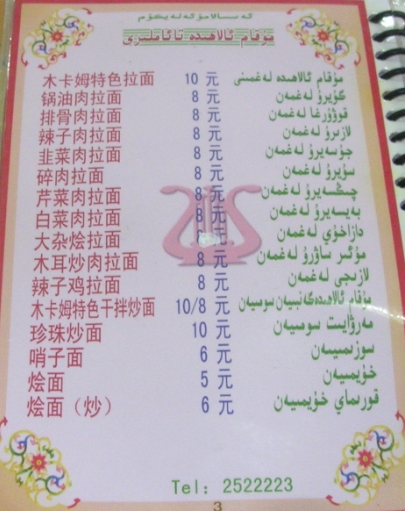 ئەسسالامۇئەلەيكۇم
مۇقام ئالاھىدە تائاملىرى
木卡姆特色拉面 10 元 مۇقام ئالاھىدە لەغمىنى
锅油肉拉面 8 元 گۆيرۇ لەغمەن
排骨肉拉面 8 元 قوۋۇرغا لەغمەن
辣子肉拉面 8 元 لازىرۇ لەغمەن
韭菜肉拉面 8 元 جۇسەيرۇ لەغمەن
碎肉拉面 8 元 سۇيرۇ لەغمەن
芹菜肉拉面 8 元 چىڭسەيرۇ لەغمەن
白菜肉拉面 8 元 بەيسەيرۇ لەغمەن
大杂烩拉面 元 دازاخۇي لەغمەن
木耳炒肉拉面 8 元 مۇئىر ساۋرۇ لەغمەن
辣子鸡拉面 8 元 لازىجى لەغمەن
木卡姆特色干拌炒面 10/8 元 مۇقام ئالاھىدە گەنبەن سومىيەن
珍珠炒面 10 元 مەرۋايىت سومىيەن
哨子面 6 元 سوزىمىيەن
烩面 5 元 خۇيمىيەن
烩面（炒） 6 元 قورىماي خۇيمىيەن
Tel: 2522223
3